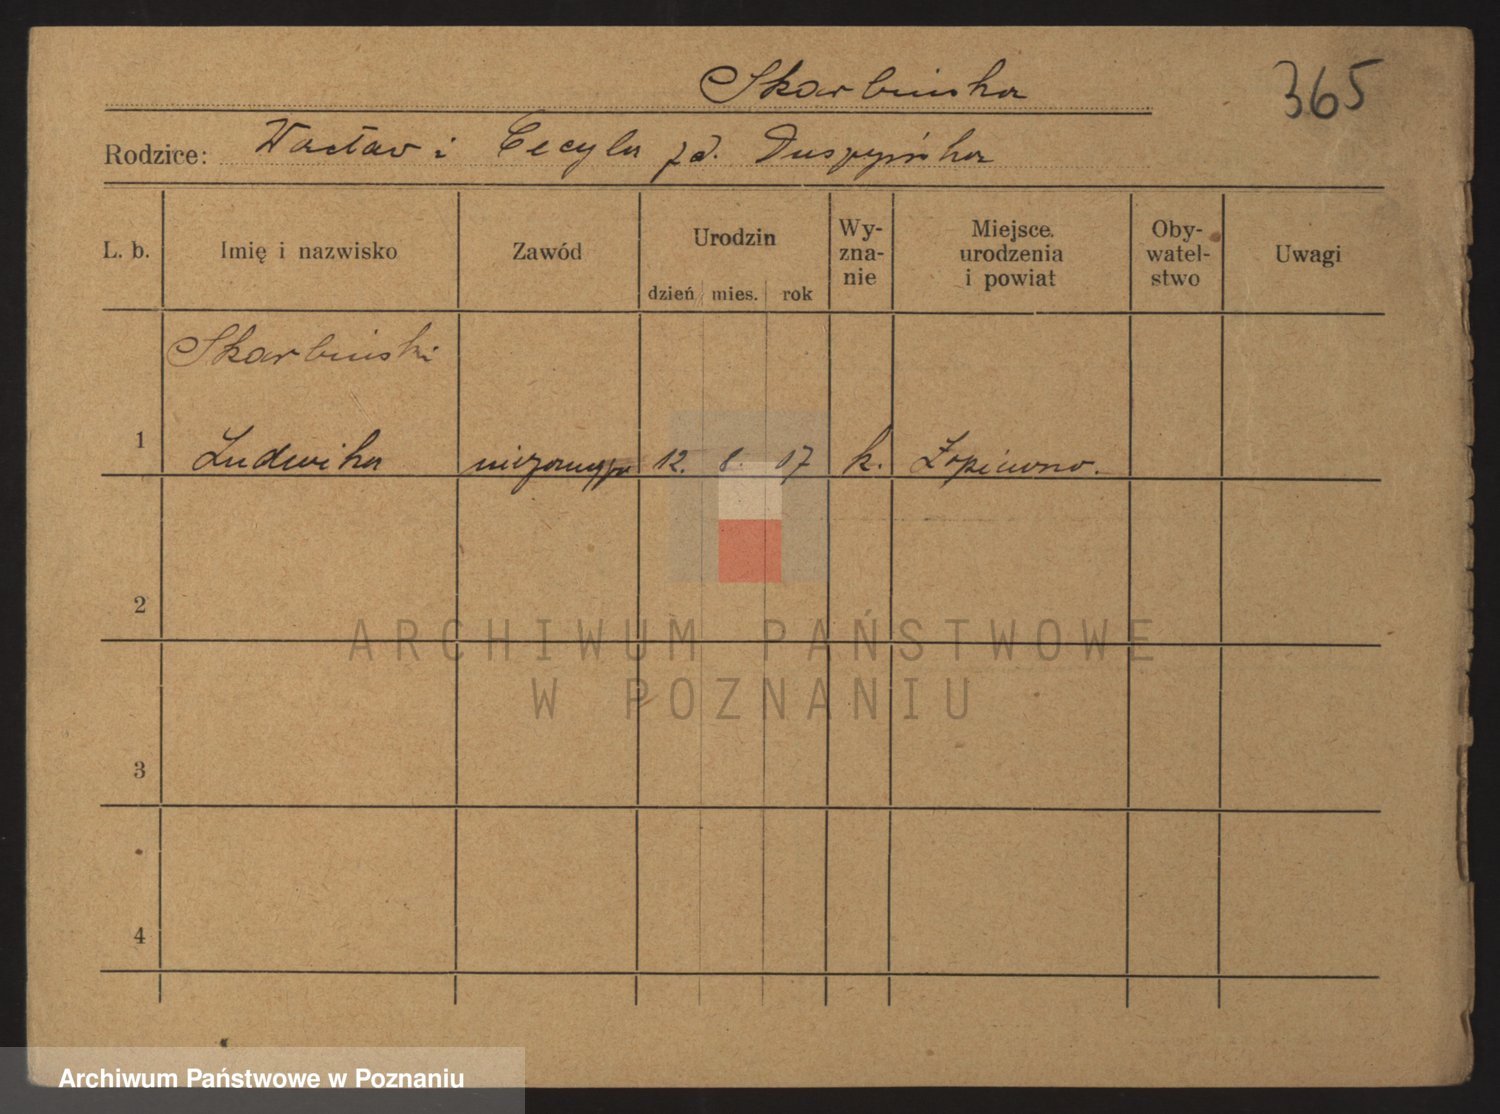 Skarbinska 365
Rodzice: Wacław i Cecyla zd.
L. b. Imię i nazwisko Zawód Urodzin dzień mies. rok Wy-zna-nie Miejsce urodzenia i powiat Oby-watel-stwo Uwagi
Skarbinski
1 Ludwika 12. 8. 17 k.
2
3
4
ARCHIWUM PAŃSTWOWE
W POZNANIU
Archiwum Państwowe w Poznaniu